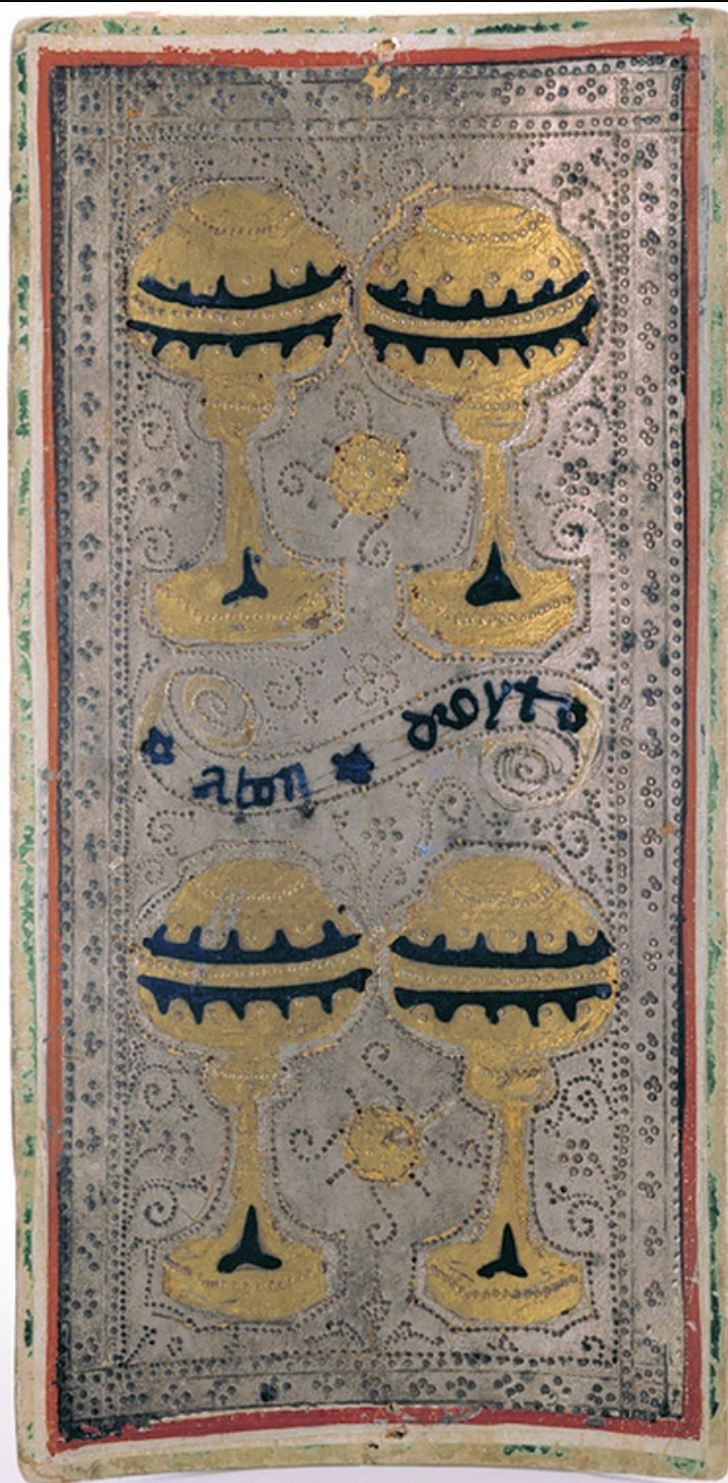 a bon droyt